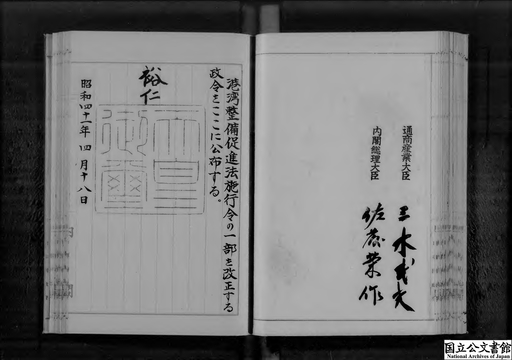 通商産業大臣
三木武夫
内閣総理大臣
佐藤榮作
港湾整備促進法施行令の一部を改正する
政令をここに公布する。
裕仁
天皇
御璽
昭和四十一年四月十八日
国立公文書館
National Archives of Japan